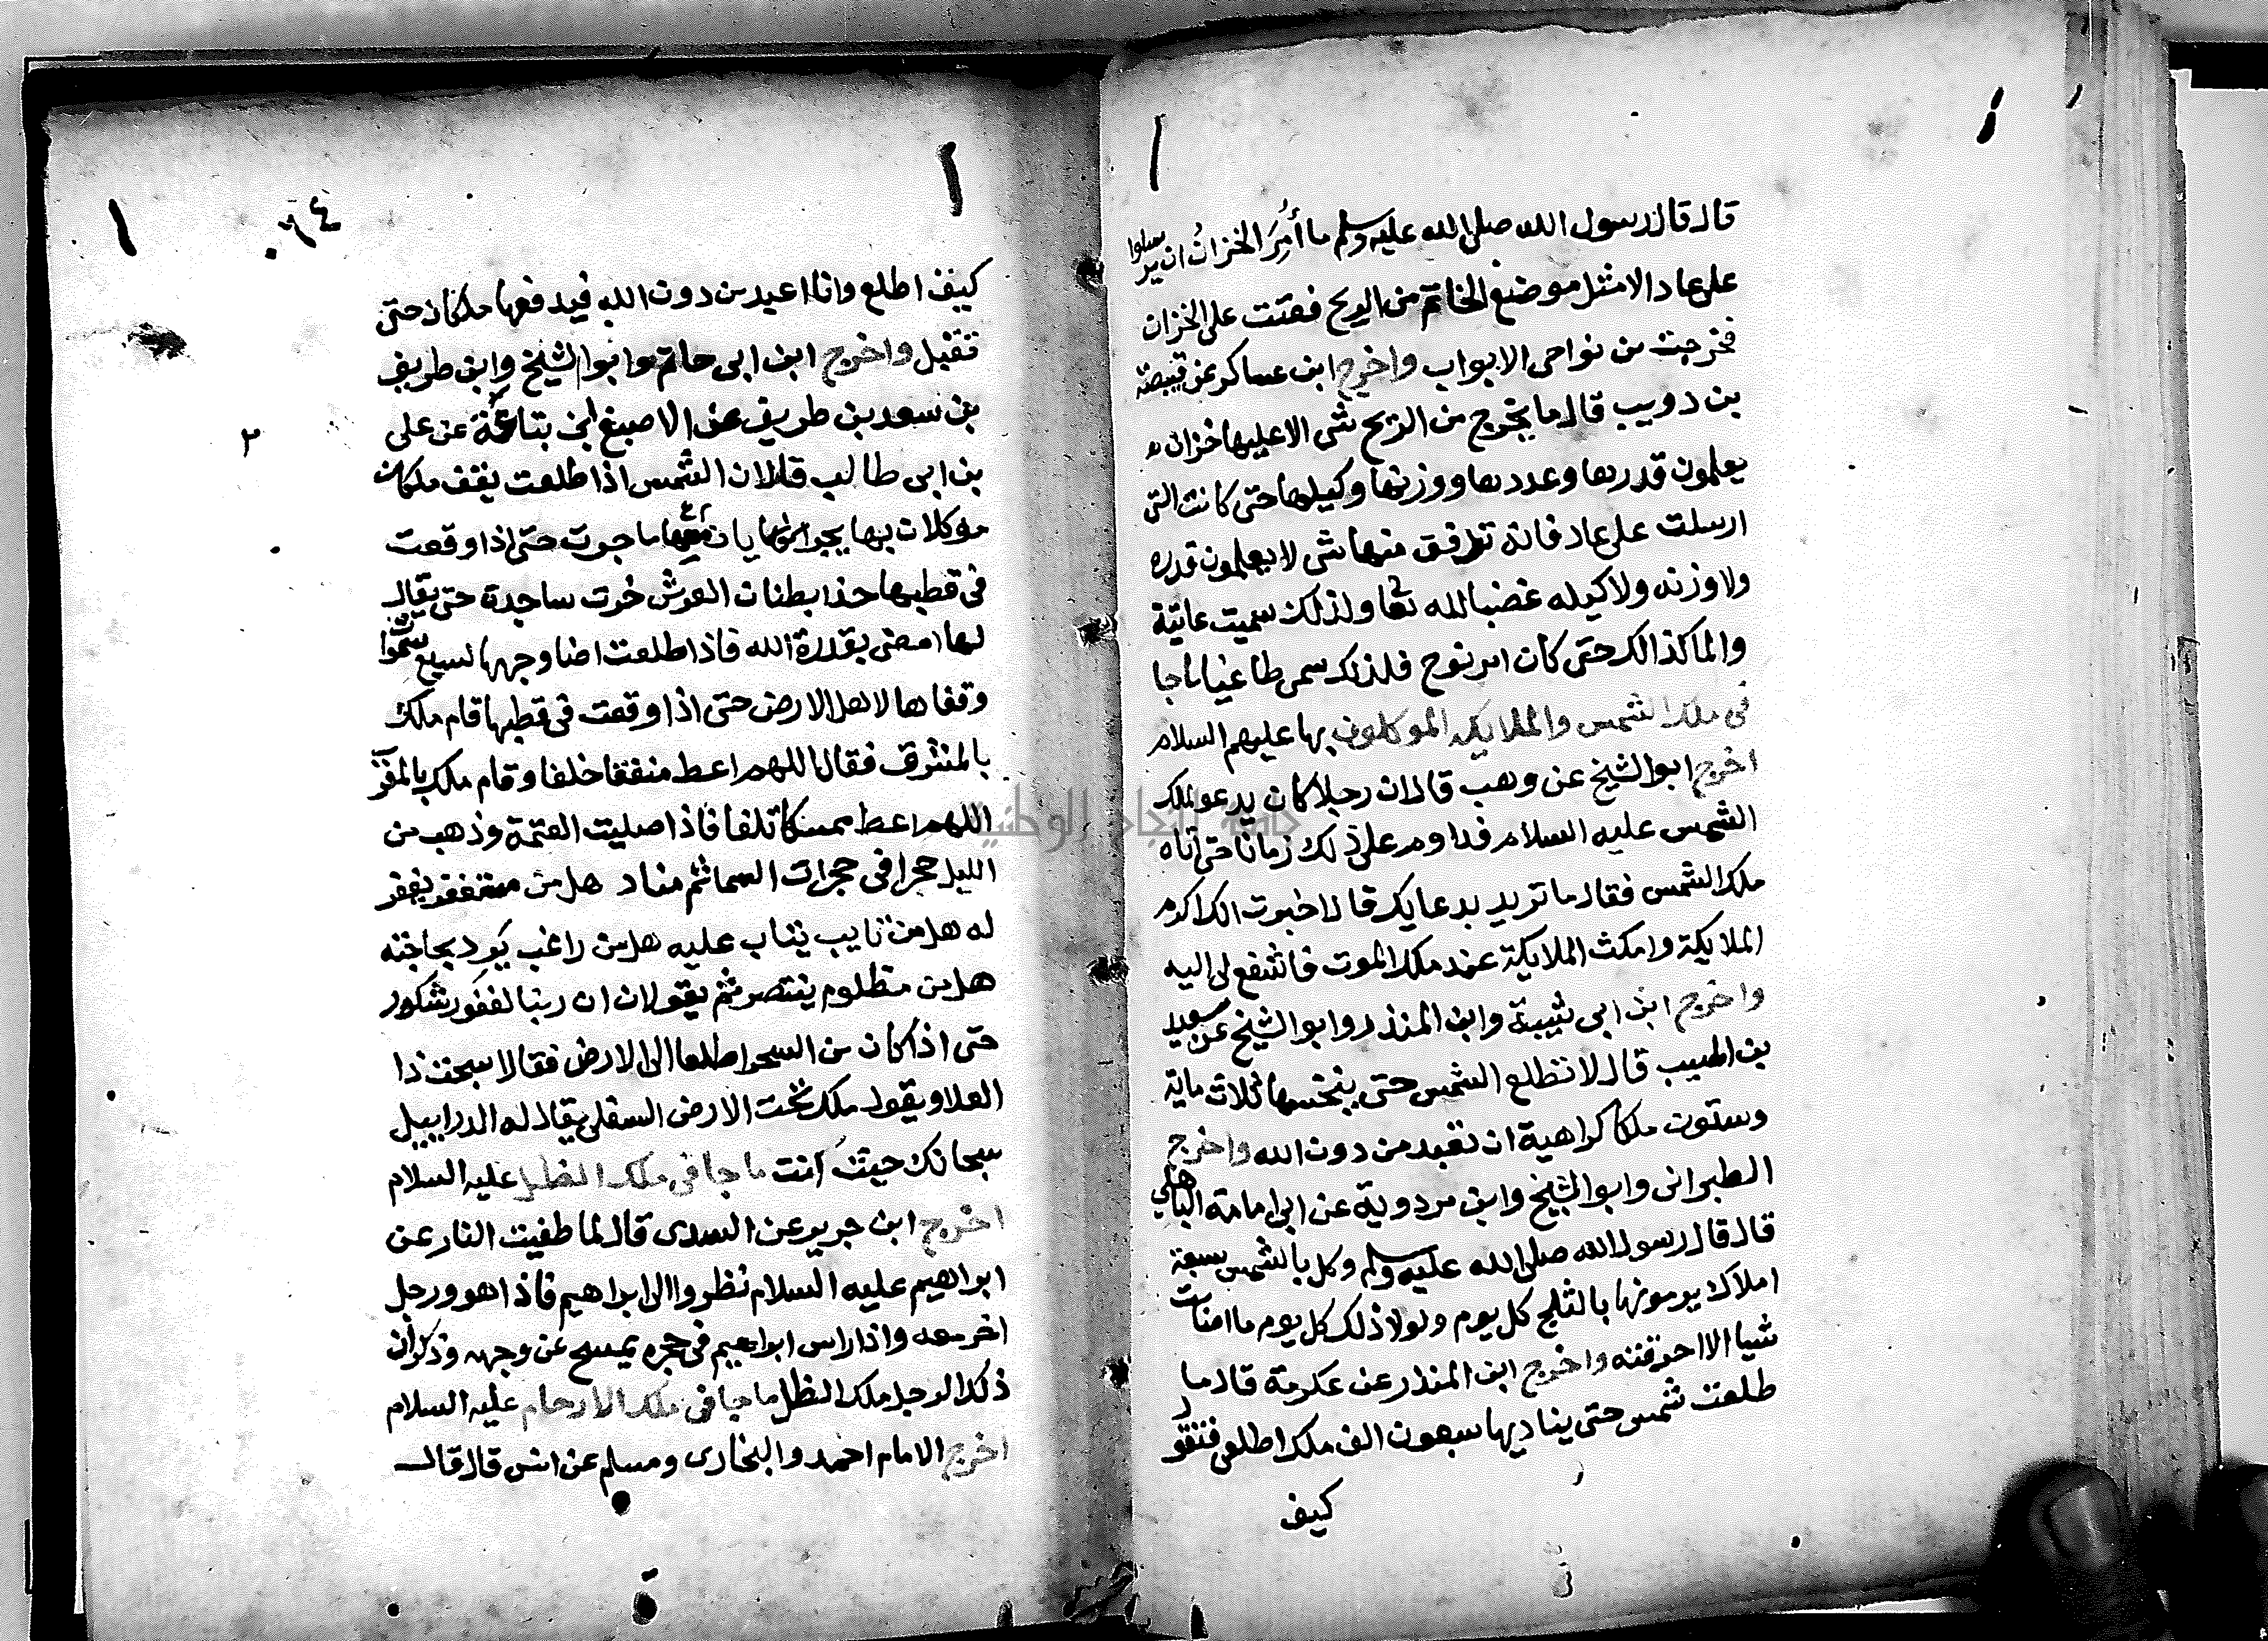 قال قال رسول الله صلى الله عليه وسلم ما أُمِرَ الخزان ان يرسلوا
على عاد الا مثل موضع الخاتم من الريح فعتت على الخزان
فخرجت من نواحى الابواب واخرج ابن عساكر عن قبيصة
بن دويب قال ما يخرج من الريح شى الا عليها خزان
يعلمون قدرها وعددها ووزنها وكيلها حتى كانت التى
ارسلت على عاد فانه تدفق منها شى لا يعلمون قدره
ولا وزنه ولا كيله غضبا لله تعا ولذلك سميت عاتية
والما كذالك حتى كان امر نوح فلذلك سمى طاغيا ماجا
فى ملك الشمس والملايكه الموكلون بها عليهم السلام
اخرج ابو الشيخ عن وهب قال ان رجلا كان يدعو لملك
الشمس عليه السلام فداوم على ذلك زمانا حتى اتاه
ملك الشمس فقال ما تريد بدعايك قال اخبرت انك اكرم
الملايكة وامكث الملايكة عند ملك الموت فاشفع لى اليه
واخرج ابن ابى شيبة وابن المنذر وابو الشيخ عن سعيد
بن المسيب قال لا تطلع الشمس حتى ينخسها ثلاث ماية
وستون ملكا كراهية ان تعبد من دون الله واخرج
الطبرانى وابو الشيخ وابن مردوية عن ابى امامة الباهلي
قال قال رسول الله صلى الله عليه وسلم وكل بالشمس سبعة
املاك يرمونها بالثلج كل يوم ولولا ذلك كل يوم ما
شيا الا احرقته واخرج ابن المنذر عن عكرمة قال ما
طلعت شمس حتى يناديها سبعون الف ملك اطلعى فتقو
كيف
٦٤
كيف اطلع وانا اعبد من دون الله فيدفعها ملكان حتى
تقبل واخرج ابن ابى حاتم وابو الشيخ وابن طريف
بن سعد بن طريف عن الاصبغ بن عن على
بن ابى طالب قال ان الشمس اذا طلعت يقف ملكان
موكلان بها يجريان معها ما جرت حتى اذا وقعت
فى قطبها حذا بطنان العرش خرت ساجدة حتى يقال
لها امضى بقدرة الله فاذا طلعت اضا وجهها لسبع سموات
وقفاها لاهل الارض حتى اذا وقعت فى قطبها قام ملك
بالمشرق فقال اللهم اعط منفقا خلفا وقام ملك بالمغرب
اللهم اعط ممسكا تلفا فاذا صليت العتمة وذهب من
الليل حجرا فى حجرات السما ثم مناد هل من مستغفر يغفر
له هل من تايب يتاب عليه هل من راغب يرد بحاجته
هل من مظلوم ينتصر ثم يقولان ان ربنا لغفور شكور
حتى اذا كان من السحر اطلعا الى الارض فقالا سبحن ذا
العلا ويقول ملك تحت الارض السفلى يقال له الدراييل
سبحانك حيث انت ما جا فى ملك الظل عليه السلام
اخرج ابن جرير عن السدى قال لما طفيت النار عن
ابراهيم عليه السلام نظروا الى ابراهيم فاذا هو ورجل
اخر معه واذا راس ابراهيم فى حجره يمسح عن وجهه وذكر ان
ذلك الرجل ملك الظل ما جا فى ملك الارحام عليه السلام
اخرج الامام احمد والبخارى ومسلم عن انس قال قال
٢
جامعة النجاح الوطنية